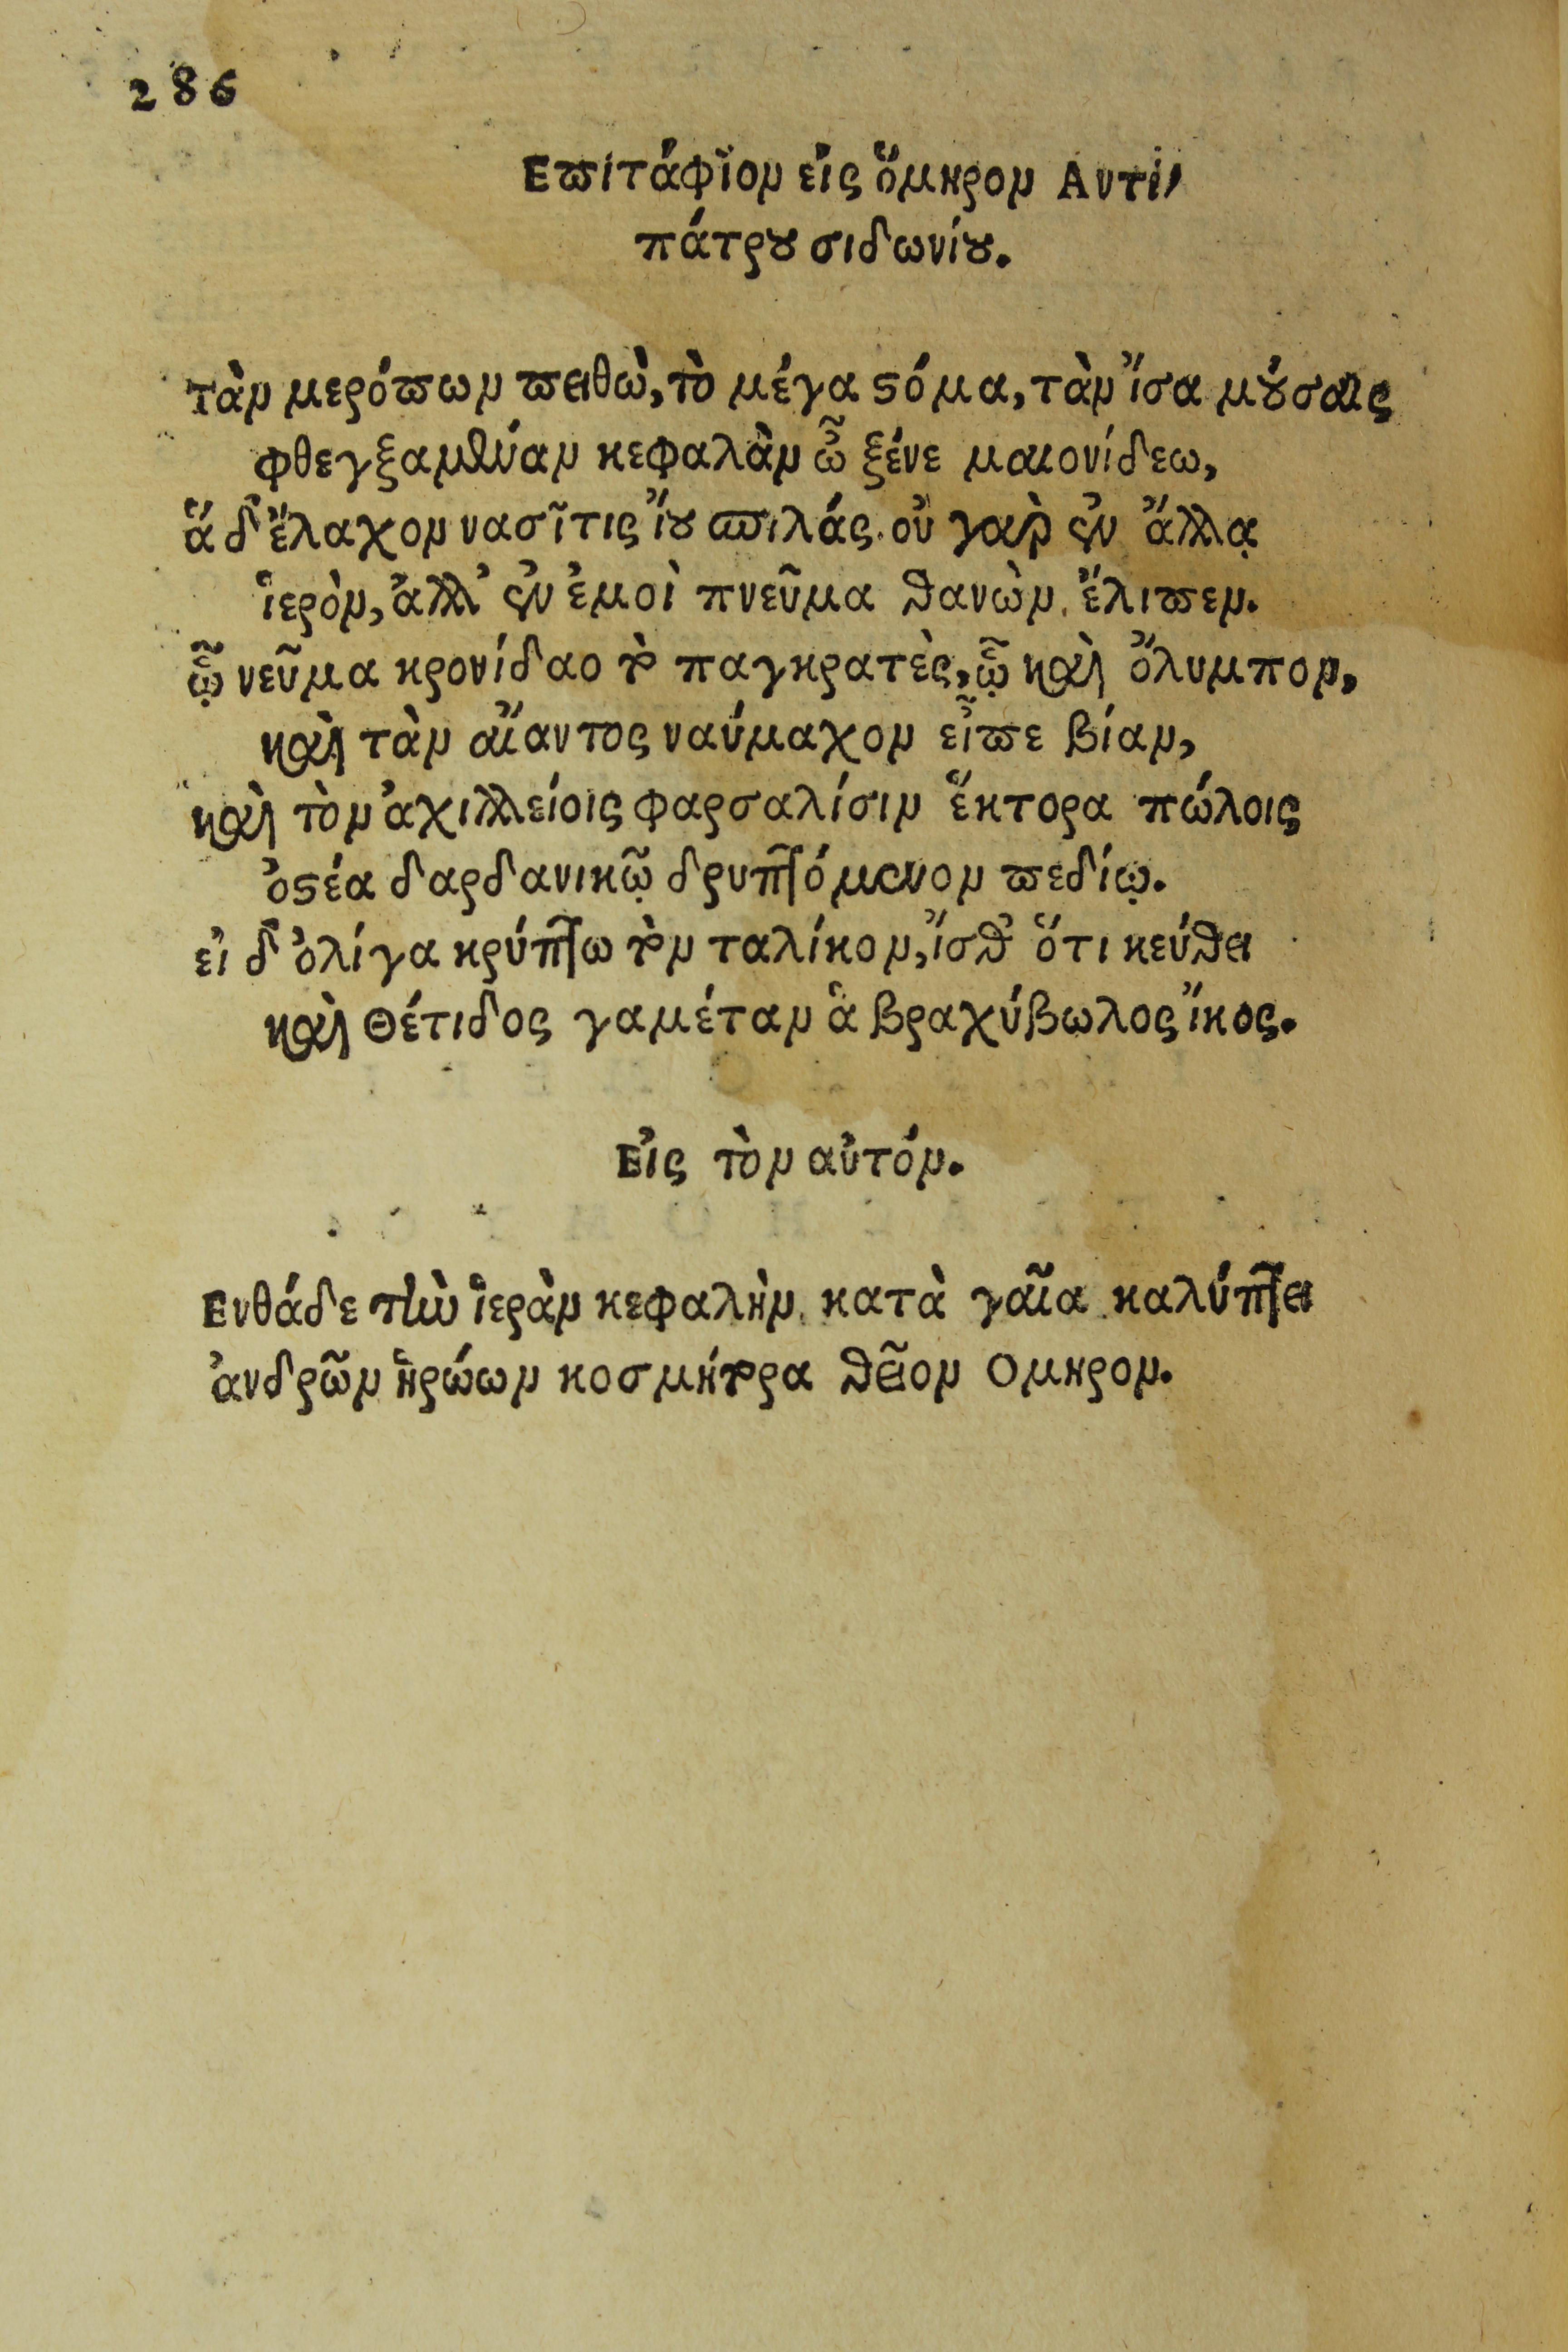 286
Επιτάφϊον εἰς ὅμηρον Αντι-
πάτρου σιδωνίου.
Τὰν μερόπων πειθὼ, τὸ μέγα στόμα, τὰν ἴσα μούσαις
φθεγξαμέναν κεφαλὰν ὦ ξένε μαιονίδεω,
ἅ δ' ἔλαχον νασῖτις ἴου σπιλάς. οὐ γὰρ ἐν ἄλλᾳ
ἱερὸν, ἀλλ' ἐν ἐμοὶ πνεῦμα θανὼν ἔλιπεν.
ᾧ νεῦμα κρονίδαο τὸ παγκρατὲς, ᾧ καὶ ὄλυμπον,
καὶ τὰν αἴαντος ναύμαχον εἶπε βίαν,
καὶ τὸν ἀχιλλείοις φαρσαλίσιν ἕκτορα πώλοις
ὀστέα δαρδανικῷ δρυπτόμενον πεδίῳ.
εἰ δ' ὀλίγα κρύπτω τὸν ταλίκον, ἴσθ' ὅτι κεύθει
καὶ Θέτιδος γαμέταν ἁ βραχύβωλος ἴκος.
Εἰς τὸν αὐτόν.
Ενθάδε τὴν ἱερὰν κεφαλὴν κατὰ γαῖα καλύπτει
ἀνδρῶν ἡρώων κοσμήτορα θεῖον Ομηρον.